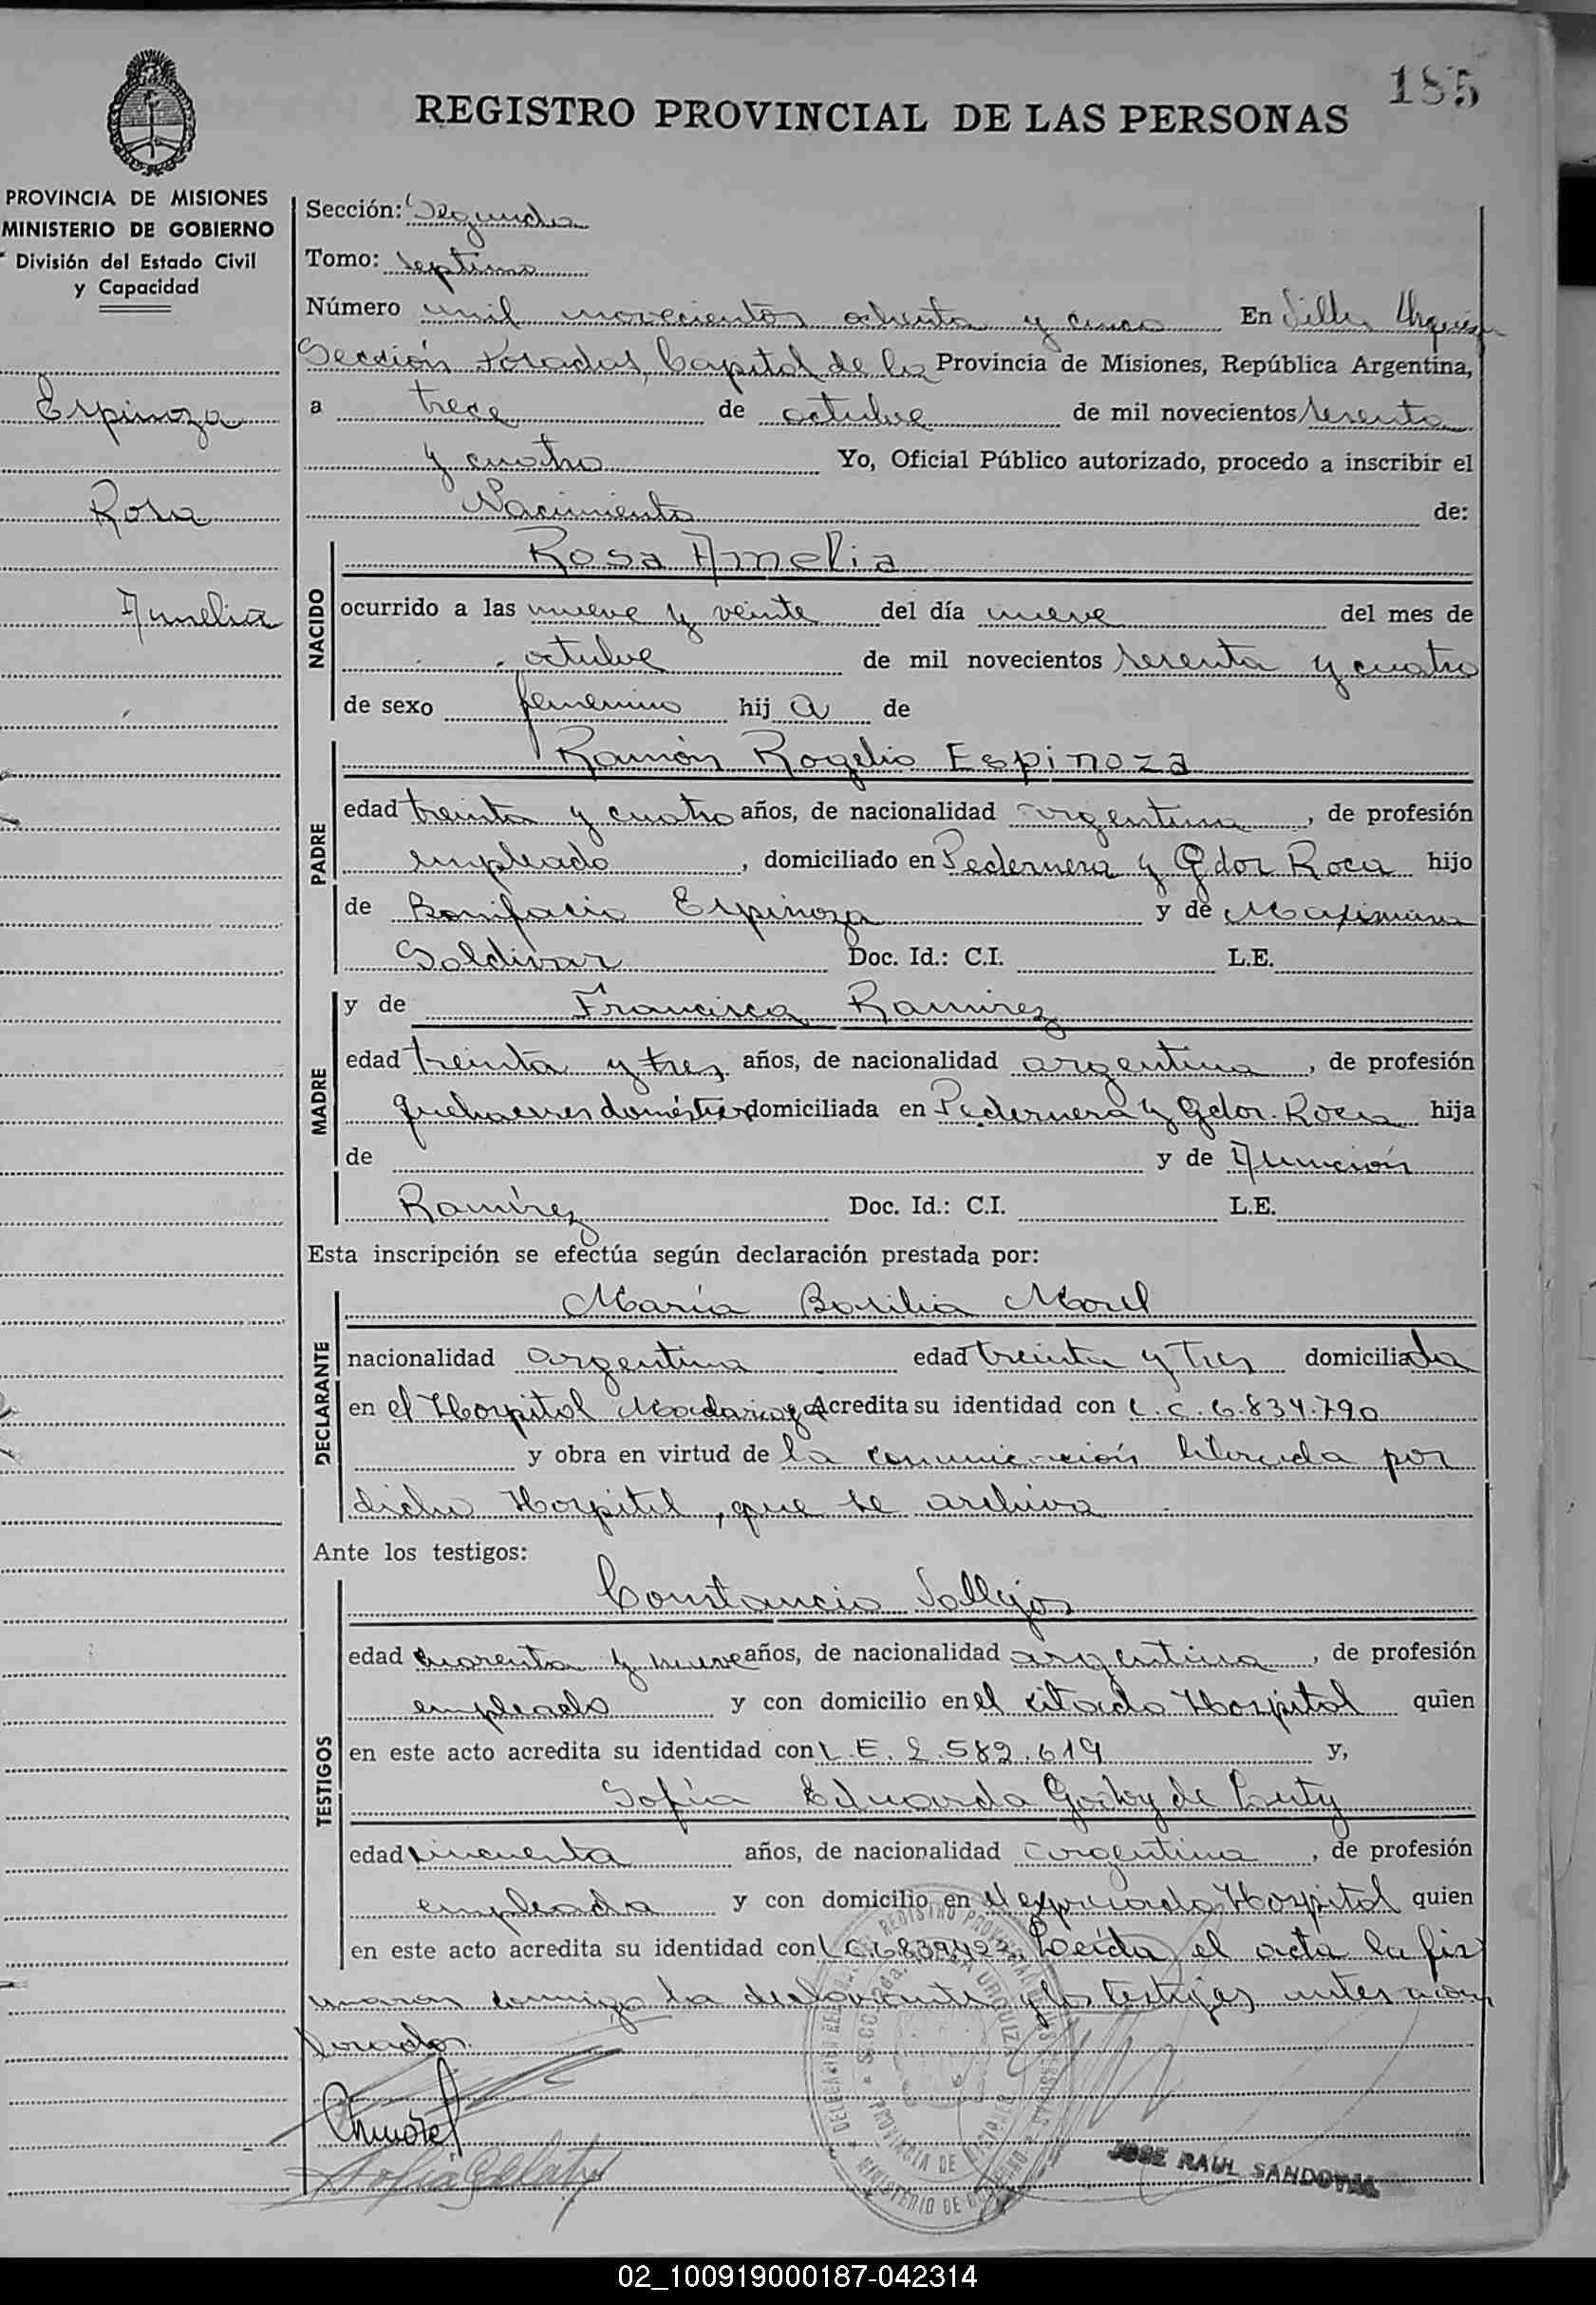 185
REGISTRO PROVINCIAL DE LAS PERSONAS
PROVINCIA DE MISIONES
MINISTERIO DE GOBIERNO
División del Estado Civil
y Capacidad
Espinoza
Rosa
Amelia
Sección: Segunda
Tomo: septimo
Número mil novecientos ochenta y cinco En Villa Urquiza
Sección Posadas, Capital de la Provincia de Misiones, República Argentina,
a trece de octubre de mil novecientos sesenta
y cuatro Yo, Oficial Público autorizado, procedo a inscribir el
Nacimiento de:
NACIDO
Rosa Amelia
ocurrido a las nueve y veinte del día nueve del mes de
octubre de mil novecientos sesenta y cuatro
de sexo femenino hij a de
PADRE
Ramón Rogelio Espinoza
edad treinta y cuatro años, de nacionalidad argentina, de profesión
empleado, domiciliado en Pedernera y Gdor Roca hijo
de Bonifacio Espinoza y de Maximina
Soldivar Doc. Id.: C.I. L.E.
MADRE
y de Francisca Ramírez
edad treinta y tres años, de nacionalidad argentina, de profesión
quehaceres domésticos domiciliada en Pedernera y Gdor. Roca hija
de y de Asunción
Ramírez Doc. Id.: C.I. L.E.
Esta inscripción se efectúa según declaración prestada por:
DECLARANTE
María Basilia Morel
nacionalidad argentina edad treinta y tres domiciliada
en el Hospital Madariaga Acredita su identidad con L.C. 6.834.790
y obra en virtud de la comunicación librada por
dicho Hospital, que se archiva
Ante los testigos:
TESTIGOS
Constancio Vallejos
edad cuarenta y nueve años, de nacionalidad argentina, de profesión
empleado y con domicilio en el citado Hospital quien
en este acto acredita su identidad con L.E. 2.582.619 y,
Sofía Eduarda de
edad cincuenta años, de nacionalidad argentina, de profesión
empleada y con domicilio en el expresado Hospital quien
en este acto acredita su identidad con L.C. 6839422 Leída el acta la fir
maron conmigo la declarante y los testigos antes mencio
nados.
JOSE RAUL SANDOVAL
02_100919000187-042314